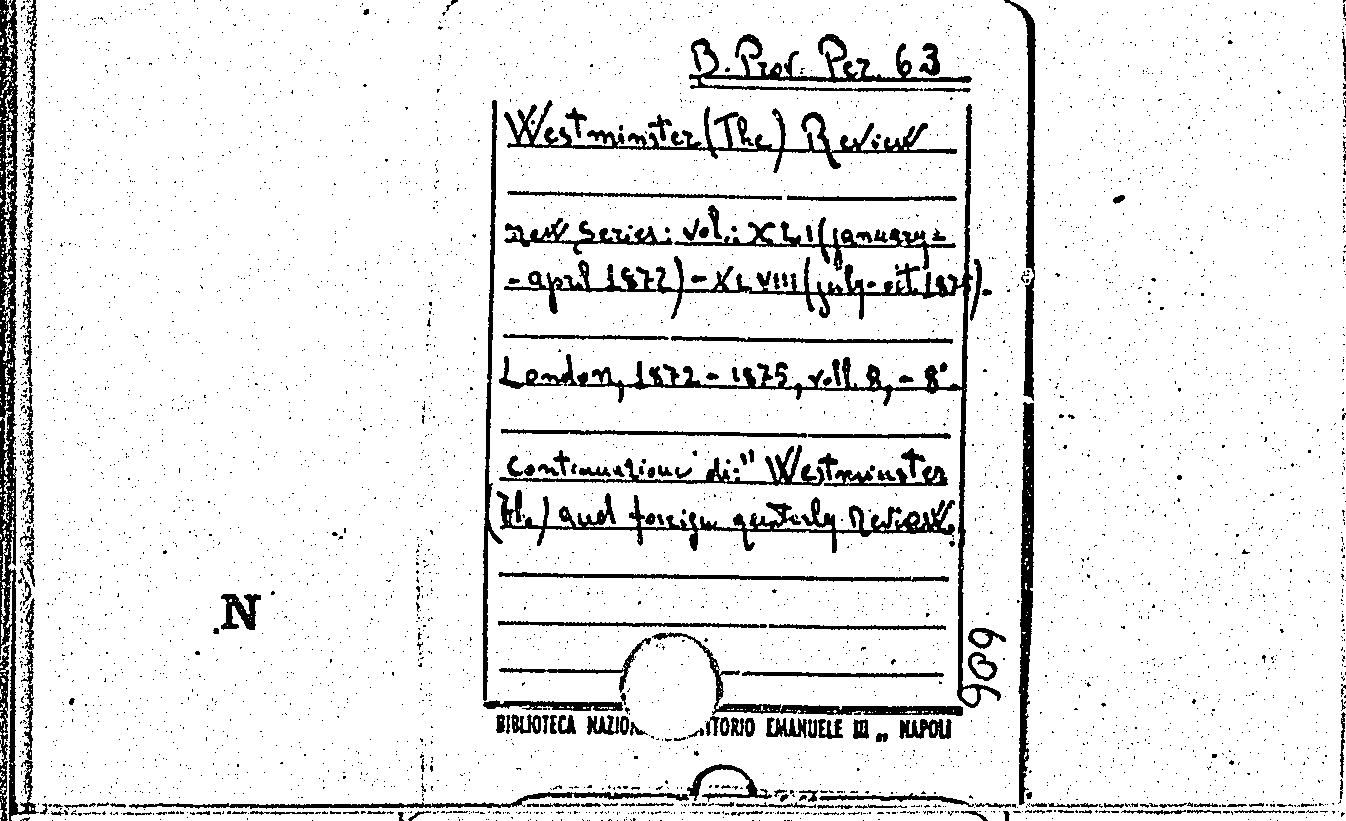 B. Prov. Per. 63
Westminster (The) Review
new Series: vol.: XLI (january-
- april 1872) - XLVIII (july-oct. 1875).
London, 1872 - 1875, voll. 8, - 8°.
continuazione di: " Westminster
(The) and foreign quarterly Review.
N
609
BIBLIOTECA EMANUELE III „ NAPOLI